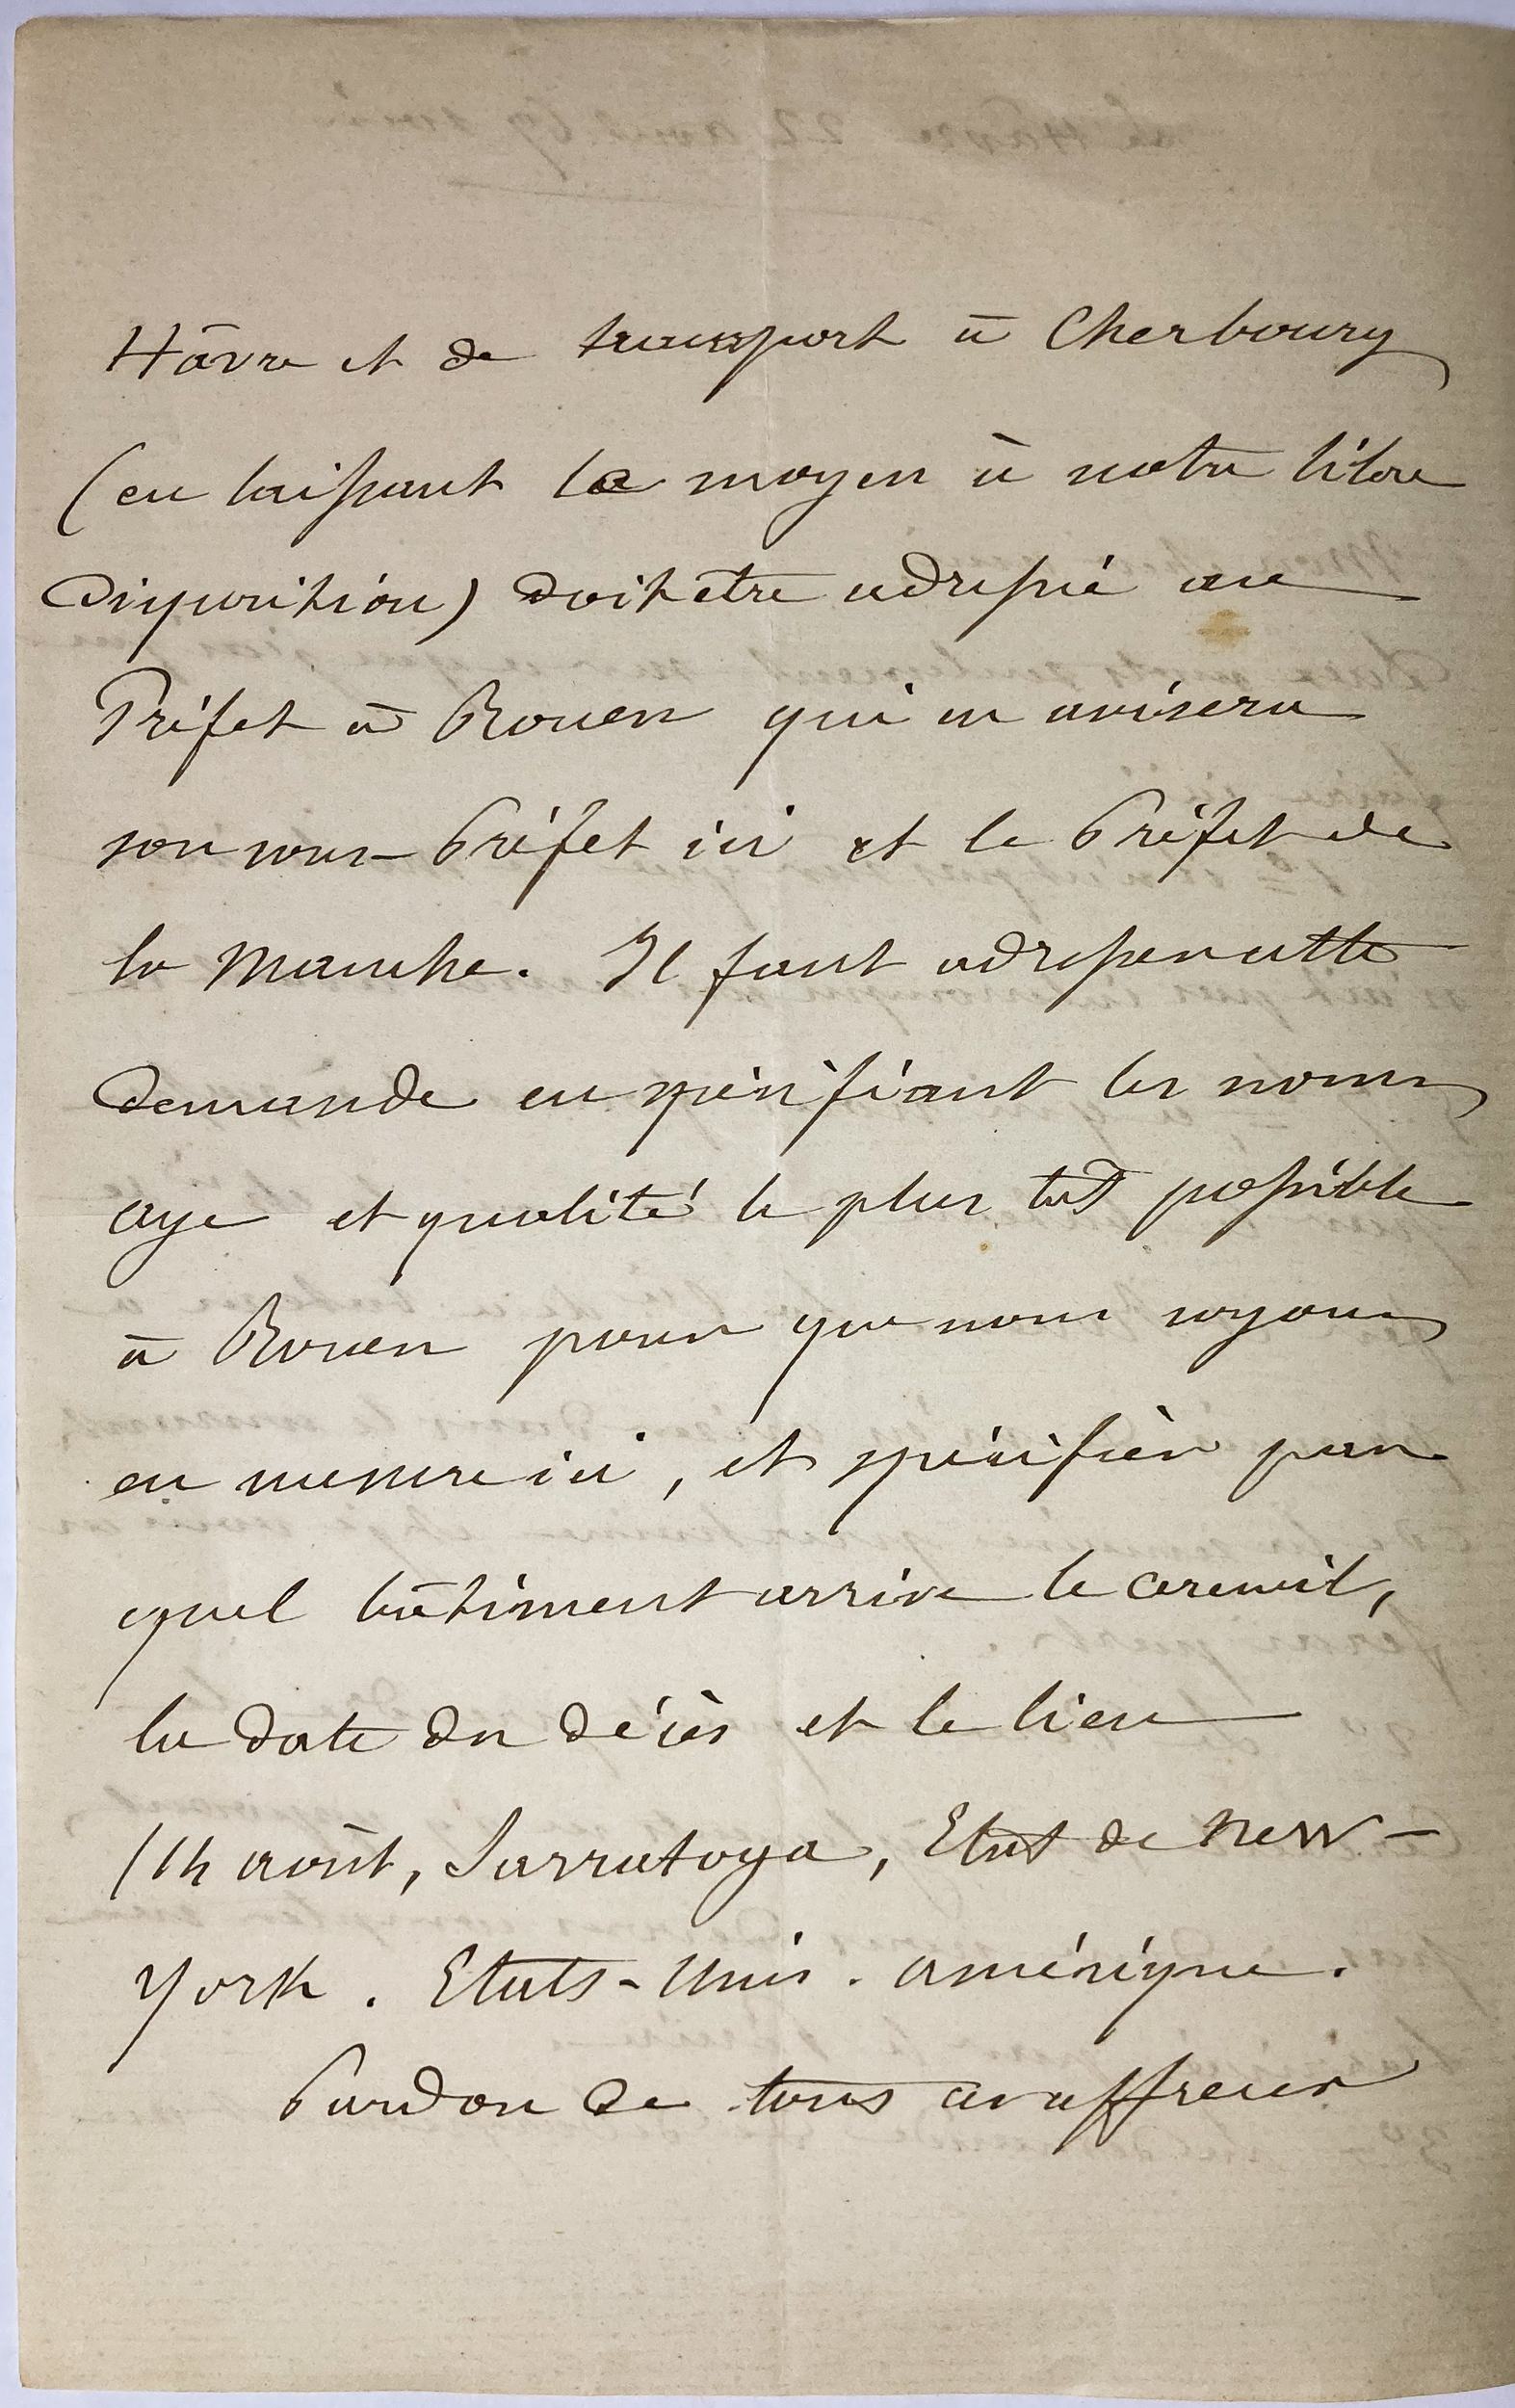 Hâvre et de transport à Cherbourg
(en laissant le moyen à notre libre
disposition) doit être adressé au
Préfet à Rouen qui en avisera
son sous-Préfet ici et le Préfet de
la Manche. Il faut adresser cette
demande en spécifiant les noms
age et qualité le plus tôt possible
à Rouen pour que nous soyons
en mesure ici, et spécifier par
quel bâtiment arrive le cercueil,
la date du décès et le lieu
(14 août, Sarratoga, Etat de New-
York. Etats-Unis. Amérique.
Pardon de tous ces affreux